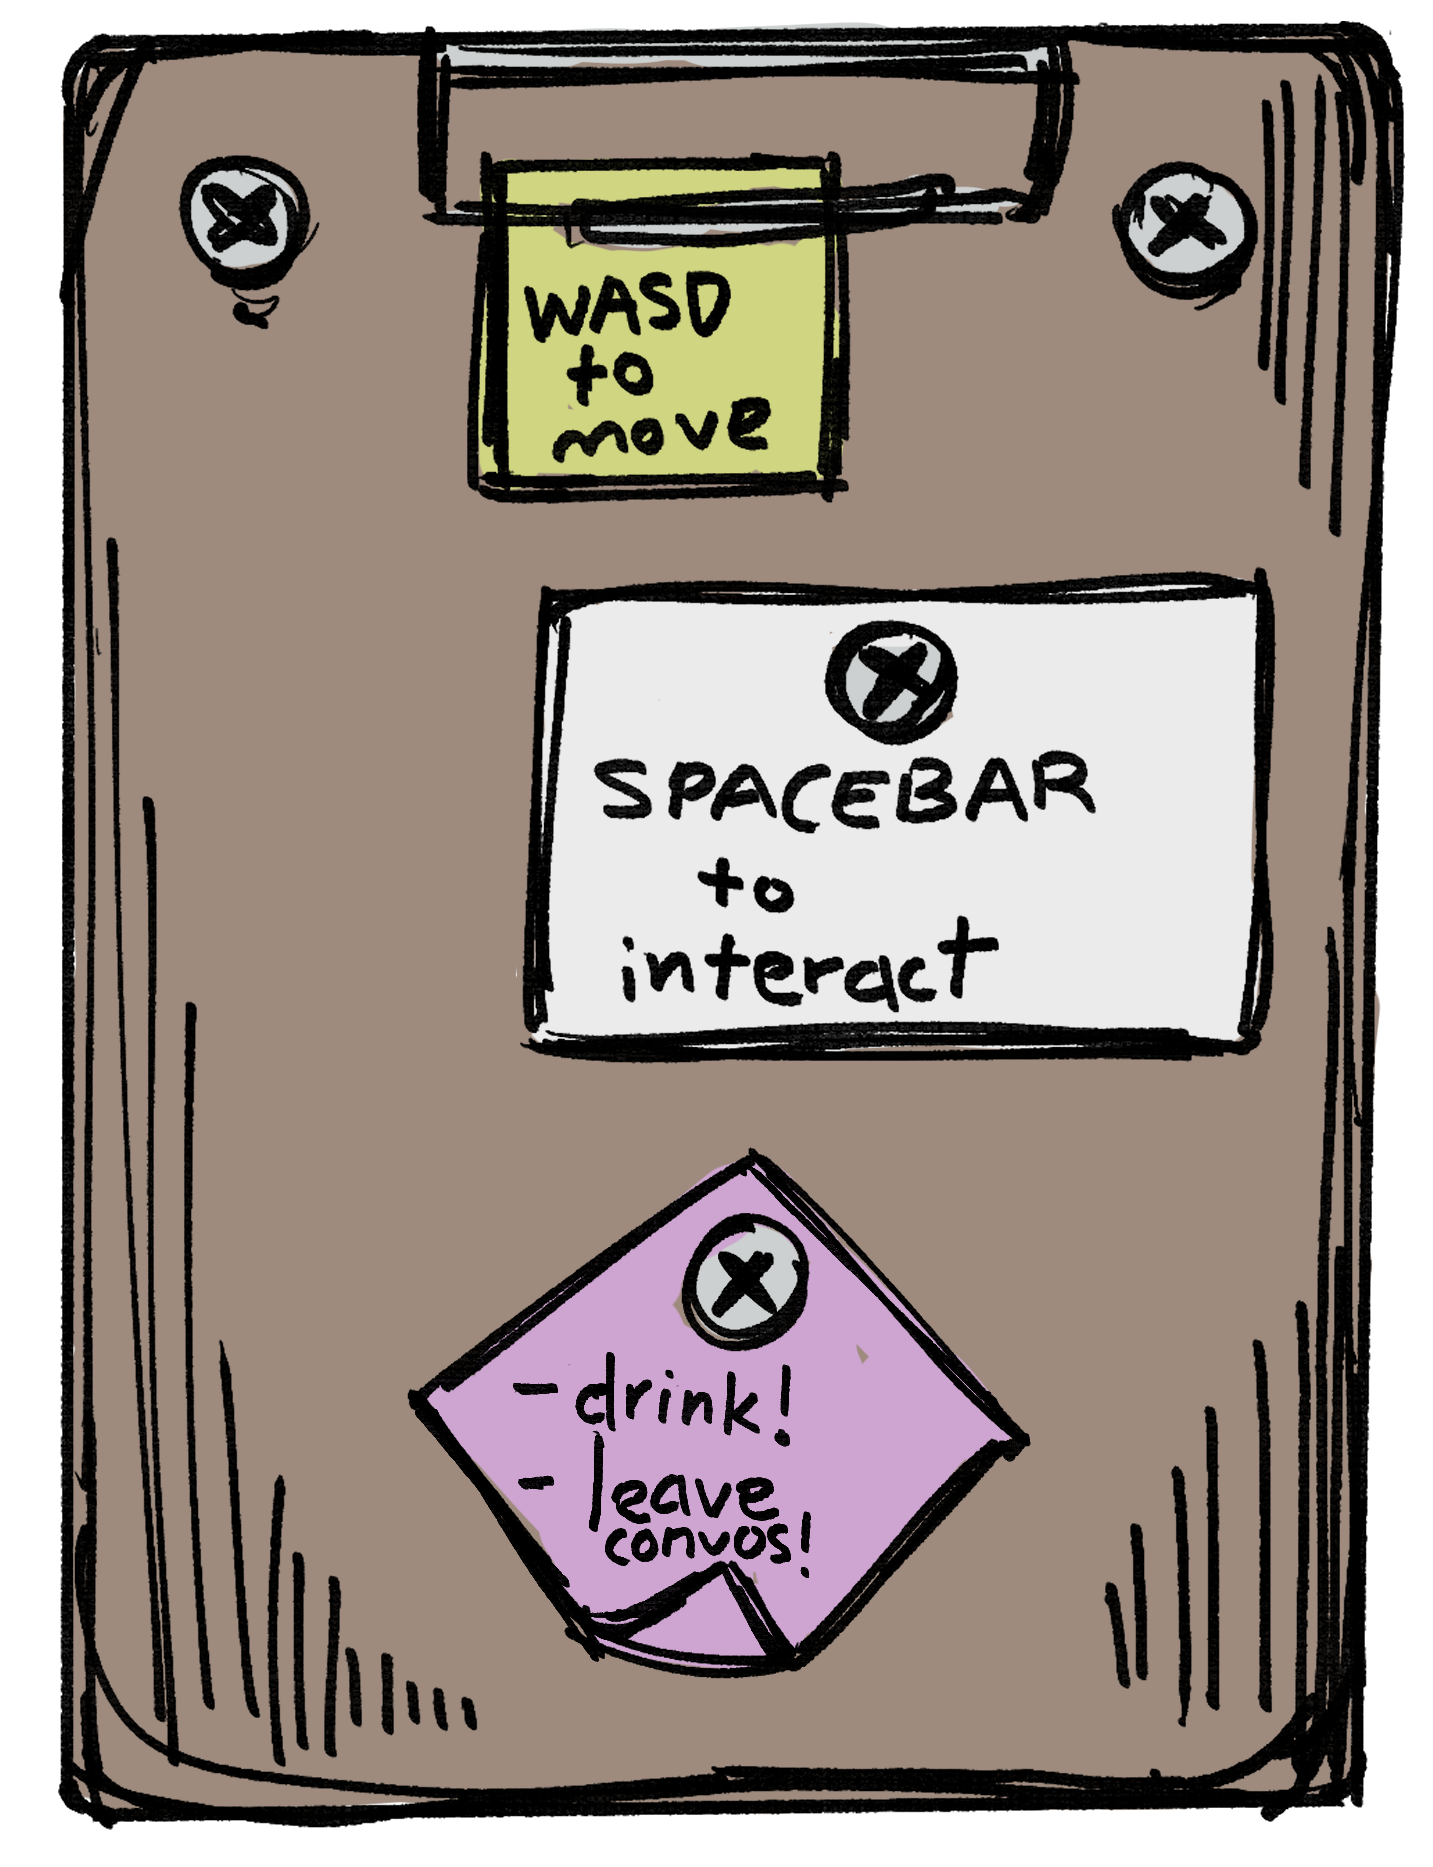 WASD
to
move
SPACEBAR
to
interact
- drink!
- leave
convos!